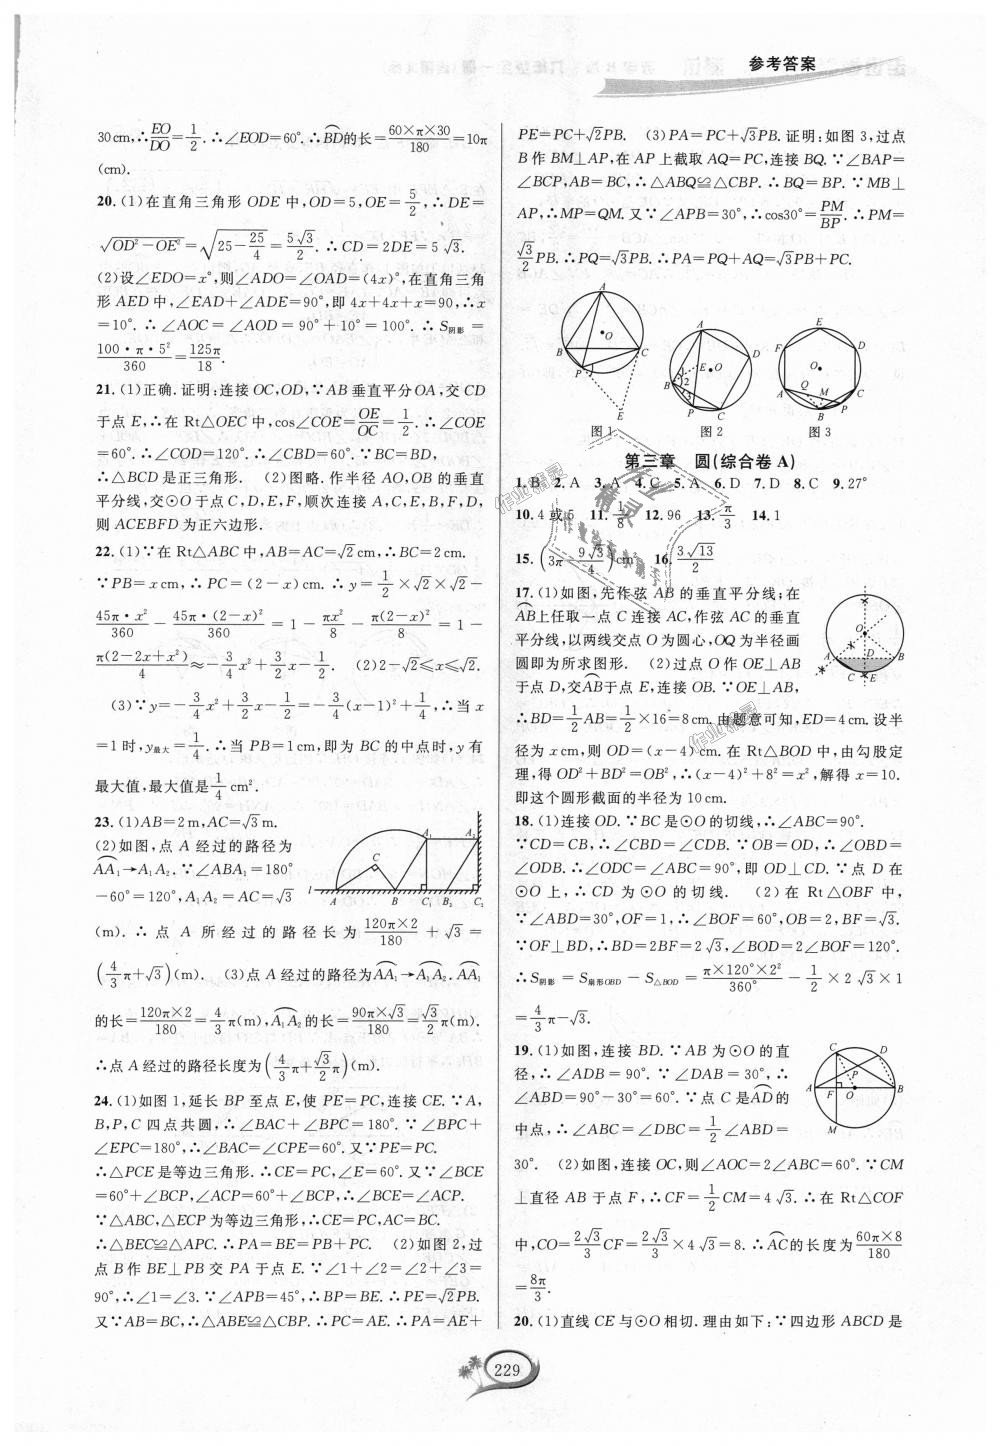 参考答案
30 cm,∴EO/DO=1/2.∴∠EOD=60°.∴BD的长=60×π×30/180=10π
(cm).
20.(1)在直角三角形 ODE 中,OD=5,OE=5/2,∴DE=
√(OD²-OE²)=√(25-25/4)=5√3/2.∴CD=2DE=5√3.
(2)设∠EDO=x°,则∠ADO=∠OAD=(4x)°,在直角三角
形 AED 中,∠EAD+∠ADE=90°,即 4x+4x+x=90,∴x
=10°.∴∠AOC=∠AOD=90°+10°=100°.∴S阴影=
100·π·5²/360=125π/18.
21.(1)正确.证明:连接 OC,OD,∵AB 垂直平分 OA,交 CD
于点 E,∴在 Rt△OEC 中,cos∠COE=OE/OC=1/2.∴∠COE
=60°.∴∠COD=120°.∴∠CBD=60°.∵BC=BD,
∴△BCD 是正三角形. (2)图略.作半径 AO,OB 的垂直
平分线,交⊙O 于点 C,D,E,F,顺次连接 A,C,E,B,F,D,
则 ACEBFD 为正六边形.
22.(1)∵在 Rt△ABC 中,AB=AC=√2 cm,∴BC=2 cm.
∵PB=x cm,∴PC=(2-x) cm.∴y=1/2×√2×√2-
45π·x²/360-45π·(2-x)²/360=1-πx²/8-π(2-x)²/8=1-
π(2-2x+x²)/4≈-3/4x²+3/2x-1/2. (2)2-√2≤x≤√2.
(3)∵y=-3/4x²+3/2x-1/2=-3/4(x-1)²+1/4,∴当 x
=1时,y最大=1/4.∴当 PB=1 cm,即为 BC 的中点时,y 有
最大值,最大值是1/4 cm².
23.(1)AB=2 m,AC=√3 m.
(2)如图,点 A 经过的路径为
AA₁→A₁A₂.∵∠ABA₁=180°
-60°=120°,A₁A₂=AC=√3
(m).∴点 A 所经过的路径长为120π×2/180+√3=
(4/3π+√3)(m). (3)点 A 经过的路径为AA₁→A₁A₂.AA₁
的长=120π×2/180=4/3π(m),A₁A₂的长=90π×√3/180=√3/2π(m).
∴点 A 经过的路径长度为(4/3π+√3/2π)(m).
24.(1)如图 1,延长 BP 至点 E,使 PE=PC,连接 CE.∵A,
B,P,C 四点共圆,∴∠BAC+∠BPC=180°.∵∠BPC+
∠EPC=180°,∴∠BAC=∠CPE=60°.又∵PE=PC.
∴△PCE 是等边三角形.∴CE=PC,∠E=60°.又∵∠BCE
=60°+∠BCP,∠ACP=60°+∠BCP,∴∠BCE=∠ACP.
∵△ABC,△ECP 为等边三角形,∴CE=PC,AC=BC.
∴△BEC≌△APC.∴PA=BE=PB+PC. (2)如图 2,过
点 B 作 BE⊥PB 交 PA 于点 E.∵∠1+∠2=∠2+∠3=
90°,∴∠1=∠3.∵∠APB=45°,∴BP=BE.∴PE=√2PB.
又∵AB=BC,∴△ABE≌△CBP.∴PC=AE.∴PA=AE+
PE=PC+√2PB. (3)PA=PC+√3PB.证明:如图 3,过点
B 作 BM⊥AP,在 AP 上截取 AQ=PC,连接 BQ.∵∠BAP=
∠BCP,AB=BC,∴△ABQ≌△CBP.∴BQ=BP.∵MB⊥
AP,∴MP=QM.又∵∠APB=30°,∴cos30°=PM/BP.∴PM=
√3/2PB.∴PQ=√3PB.∴PA=PQ+AQ=√3PB+PC.
图 1 图 2 图 3
第三章 圆(综合卷 A)
1.B 2.A 3.A 4.C 5.A 6.D 7.D 8.C 9.27°
10.4 或 5 11.1/8 12.96 13.π/3 14.1
15.(3π-9√3/4)cm² 16.3√13/2
17.(1)如图,先作弦 AB 的垂直平分线;在
AB上任取一点 C 连接 AC,作弦 AC 的垂直
平分线,以两线交点 O 为圆心,OA 为半径画
圆即为所求图形. (2)过点 O 作 OE⊥AB
于点 D,交AB于点 E,连接 OB.∵OE⊥AB,
∴BD=1/2AB=1/2×16=8 cm.由题意可知,ED=4 cm.设半
径为 x cm,则 OD=(x-4) cm.在 Rt△BOD 中,由勾股定
理,得 OD²+BD²=OB²,∴(x-4)²+8²=x²,解得 x=10.
即这个圆形截面的半径为 10 cm.
18.(1)连接 OD.∵BC 是⊙O 的切线,∴∠ABC=90°.
∵CD=CB,∴∠CBD=∠CDB.∵OB=OD,∴∠OBD=
∠ODB.∴∠ODC=∠ABC=90°,即 OD⊥CD.∵点 D 在
⊙O 上,∴CD 为⊙O 的切线. (2)在 Rt△OBF 中,
∵∠ABD=30°,OF=1,∴∠BOF=60°,OB=2,BF=√3.
∵OF⊥BD,∴BD=2BF=2√3,∠BOD=2∠BOF=120°.
∴S阴影=S扇形OBD-S△BOD=π×120°×2²/360°-1/2×2√3×1
=4/3π-√3.
19.(1)如图,连接 BD.∵AB 为⊙O 的直
径,∴∠ADB=90°.∵∠DAB=30°,∴
∠ABD=90°-30°=60°.∵点 C 是AD的
中点,∴∠ABC=∠DBC=1/2∠ABD=
30°. (2)如图,连接 OC,则∠AOC=2∠ABC=60°.∵CM
⊥直径 AB 于点 F,∴CF=1/2CM=4√3.∴在 Rt△COF
中,CO=2√3/3CF=2√3/3×4√3=8.∴AC的长度为60π×8/180
=8π/3.
20.(1)直线 CE 与⊙O 相切.理由如下:∵四边形 ABCD 是
229